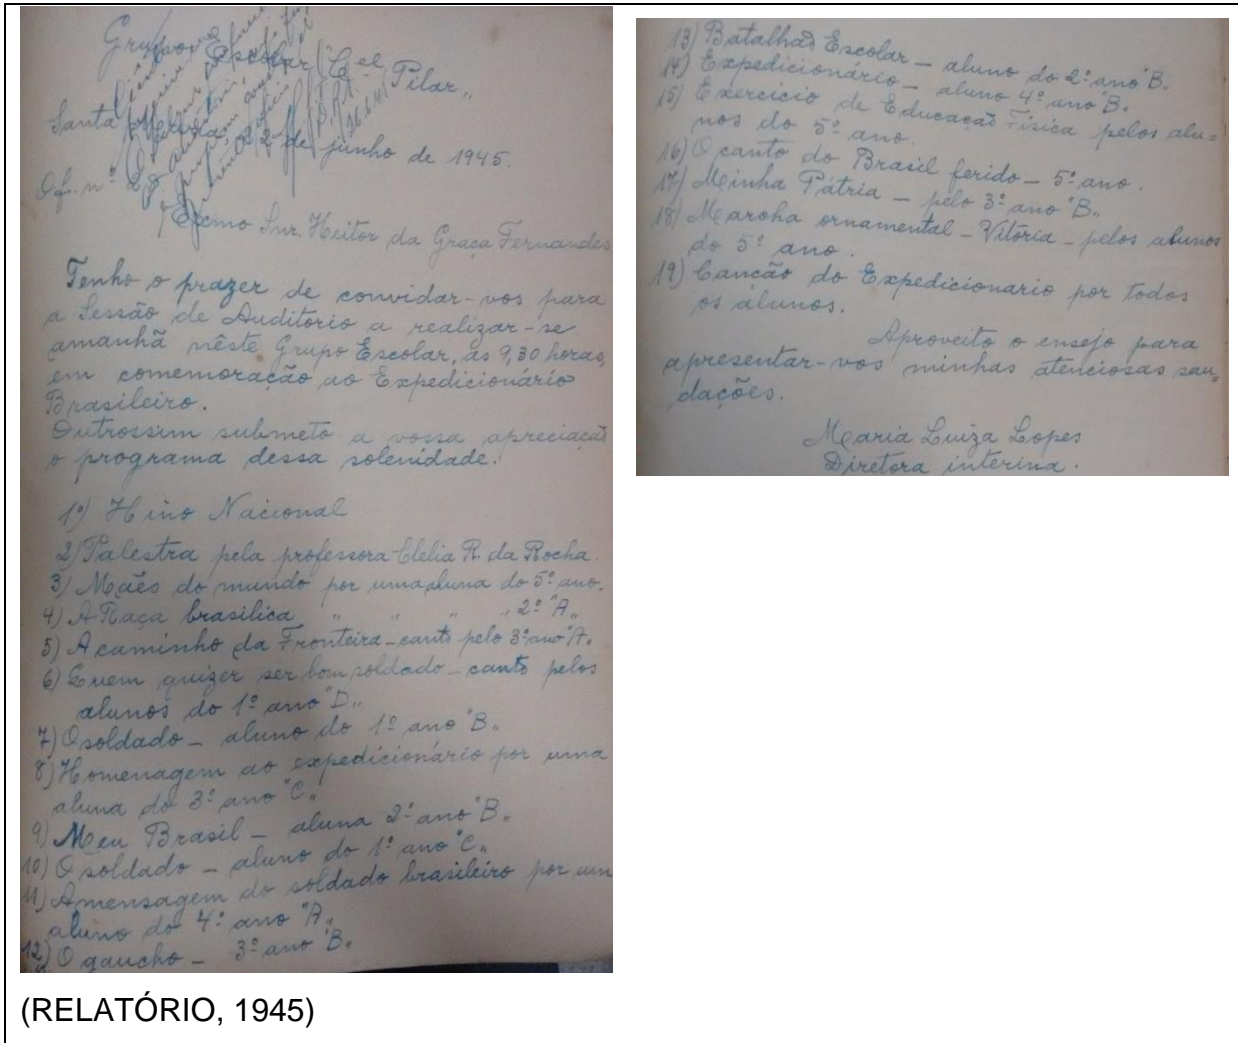 Grupo Escolar "Cel Pilar"
Santa Maria 22 de junho de 1945.
Of. nº
Exmo Snr. Heitor da Graça Fernandes
Tenho o prazer de convidar-vos para
a Sessão de Auditorio a realizar-se
amanhã nêste Grupo Escolar, às 9,30 horas,
em comemoração ao Expedicionário
Brasileiro.
Outrossim submeto a vossa apreciação
o programa dessa solenidade.
1º) Hino Nacional
2) Palestra pela professora Clelia R. da Rocha.
3) Mães do mundo por uma aluna do 5º ano.
4) A Raça brasilica " " " " 2º "A"
5) A caminho da Fronteira - canto pelo 3º ano "A".
6) Quem quizer ser bom soldado - canto pelos
alunos do 1º ano "D"
7) O soldado - aluno do 1º ano "B"
8) Homenagem ao expedicionário por uma
aluna do 3º ano "C"
9) Meu Brasil - aluna 2º ano "B"
10) O soldado - aluno do 1º ano "C"
11) A mensagem do soldado brasileiro por um
aluno do 4º ano "A"
12) O gaucho - 3º ano "B"
13) Batalhão Escolar - aluno do 2º ano "B"
14) Expedicionário - aluno 4º ano "B"
15) Exercicio de Educação Fisica pelos alu=
nos do 5º ano.
16) O canto do Brasil ferido - 5º ano.
17) Minha Pátria - pelo 3º ano "B"
18) Marcha ornamental - Vitória - pelos alunos
do 5º ano.
19) Canção do Expedicionario por todos
os álunos.
Aproveito o ensejo para
apresentar-vos minhas atenciosas sau=
dações.
Maria Luiza Lopes
Diretora interina.
(RELATÓRIO, 1945)